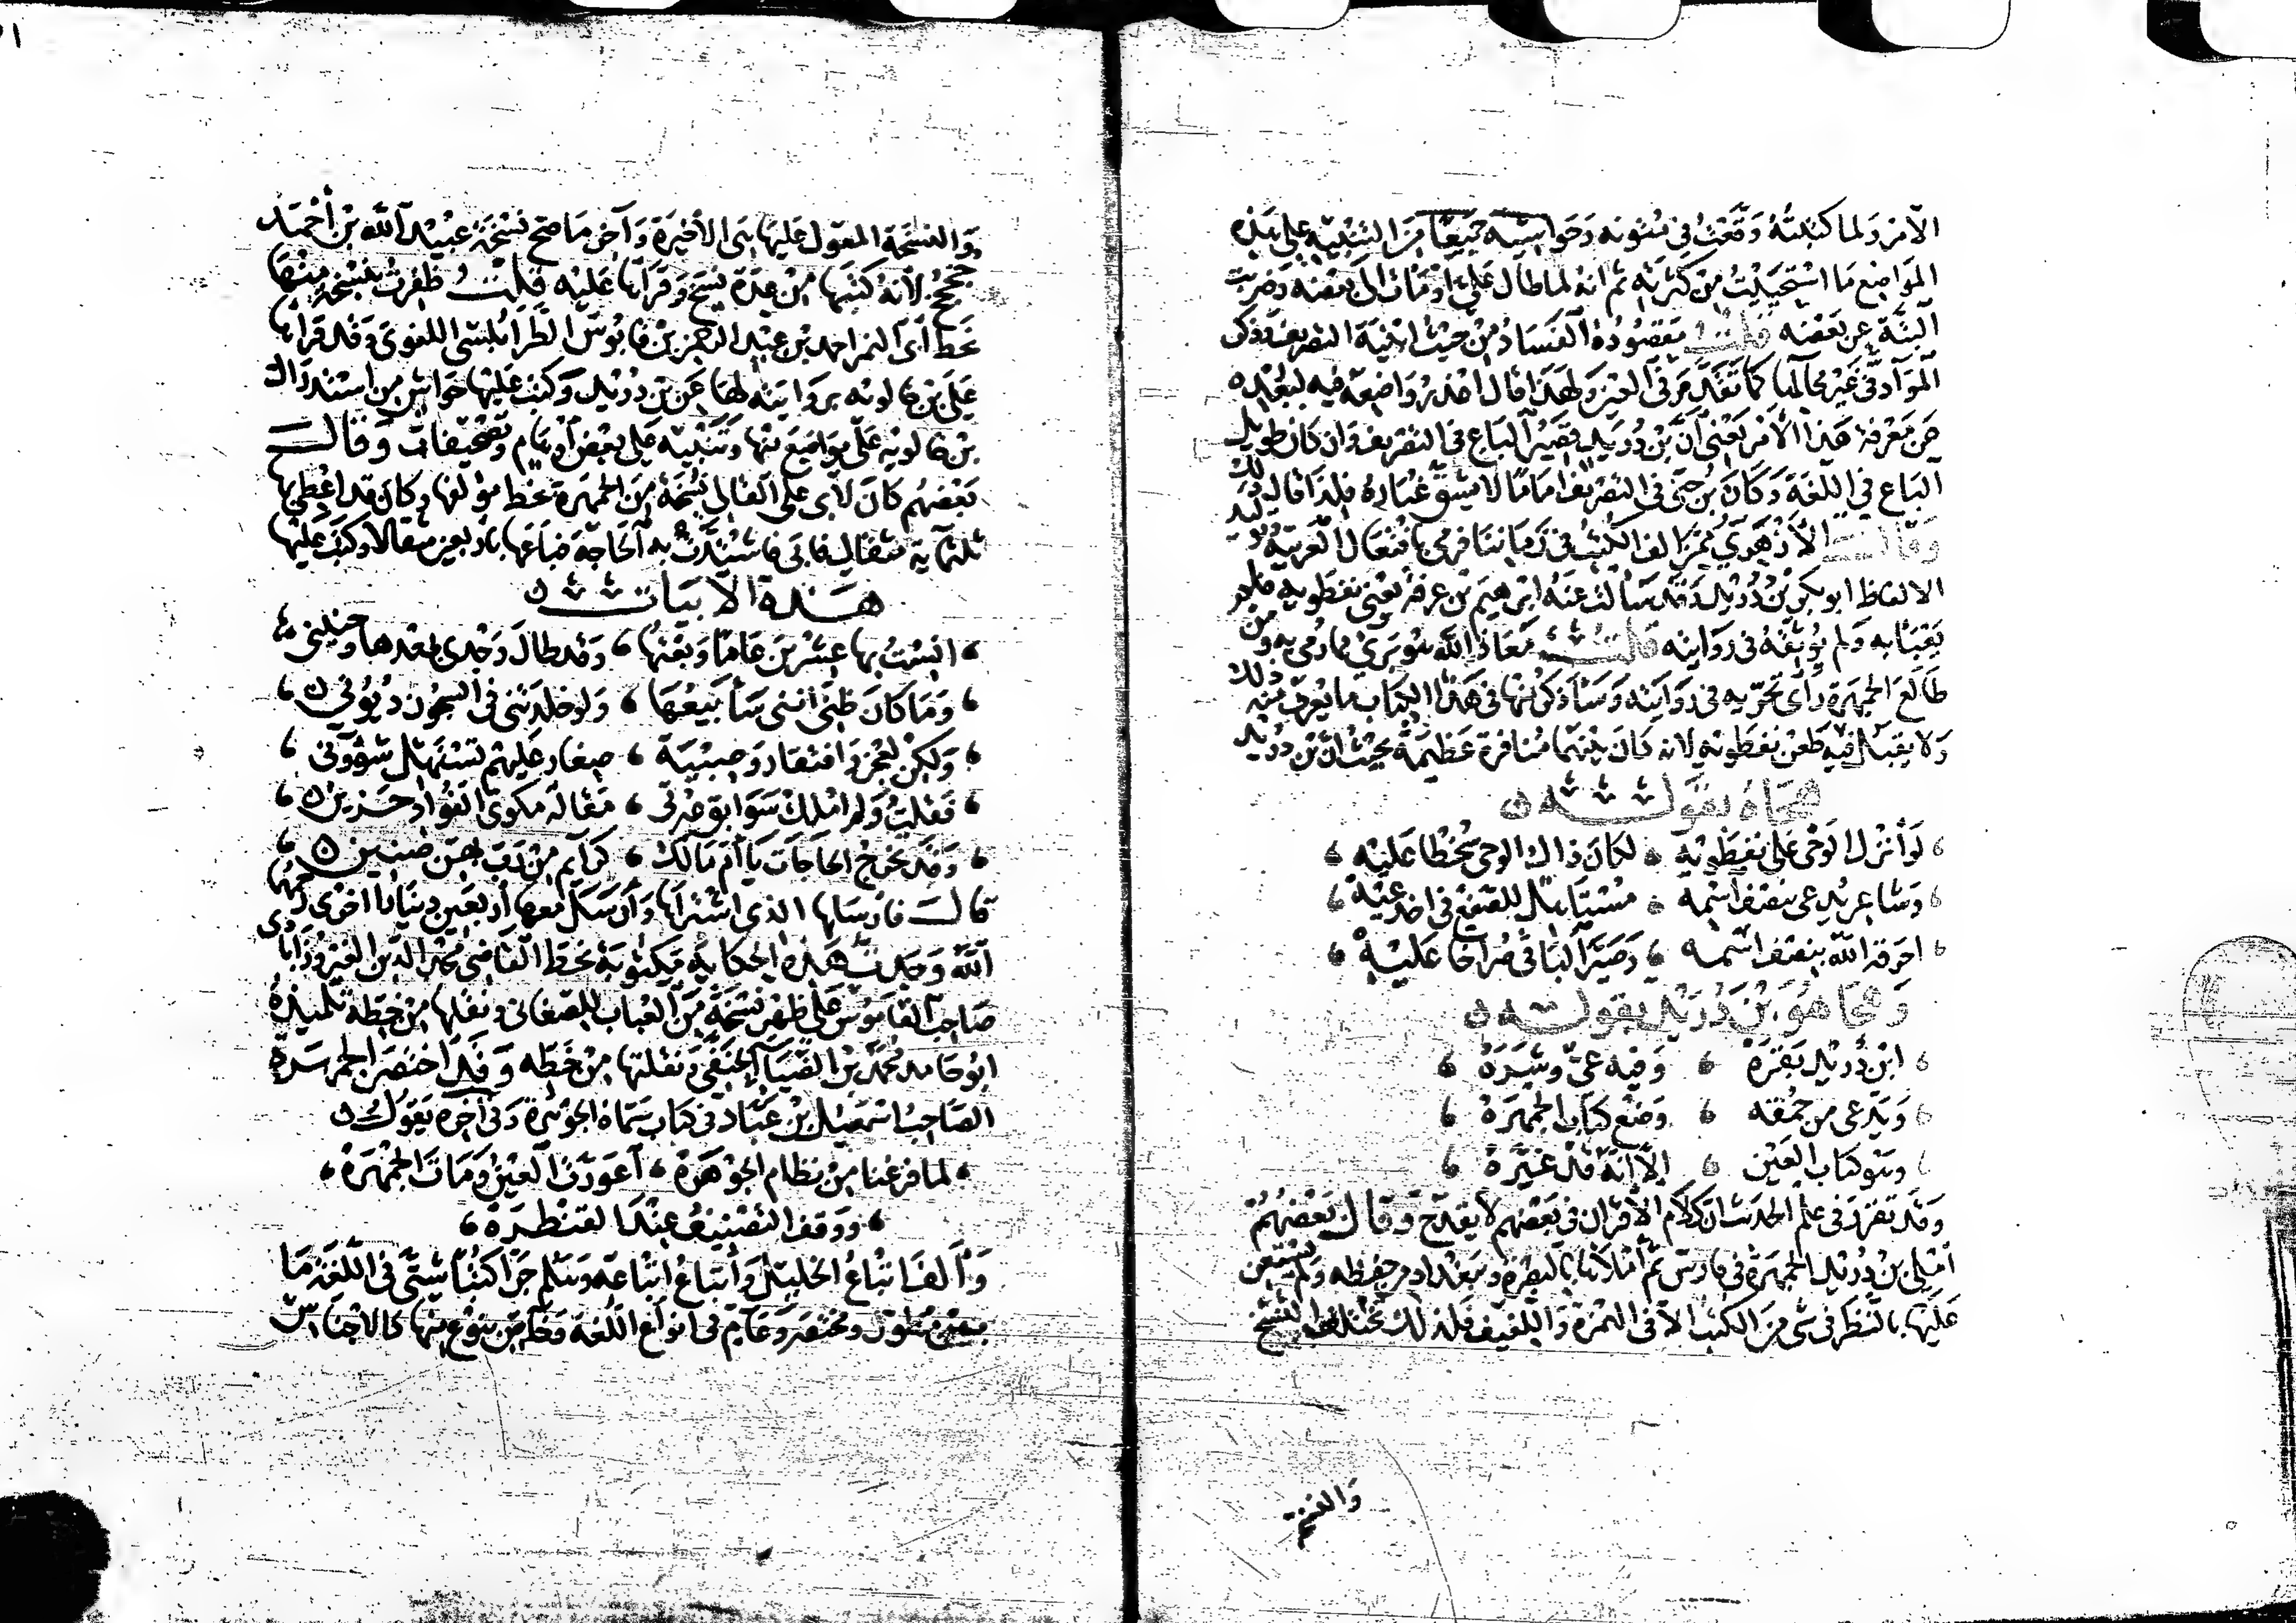 الأمر ولما كتبته وقعت في متونه وحواشيه جميعا من التنبيه على هذه
المواضع ما استحييت من كثرته ثم انه لما طال علي اومأت الى بعضه وضربت
البتة عن بعضه قلت مقصوده الفساد من حيث ابنية التصريف وذكر
المواد في غير محالها كما تقدم في العين ولهذا قال اعذر واضعه فيه لبعده
عن معرفة هذا الأمر يعني أن بن دريد قصير الباع في التصريف وان كان طويل
الباع في اللغة وكان بن جني في التصريف اماما لا يشق غباره فلذا قال ذلك
وقال الأزهري ممن الف الكتب في زماننا فرمي بافتعال العربية وتوليد
الالفاظ ابو بكر بن دريد وقد سألت عنه ابرهيم بن عرفة يعني نفطويه فلم
يعبأ به ولم يوثقه في روايته قلت معاذ الله هو بري مما رمي به ومن
طالع الجمهرة رأى تحريه في روايته وسأذكر منها في هذا الكتاب ما يعرف منه ذلك
ولا يقبل فيه طعن نفطويه لانه كان بينهما منافرة عظيمة بحيث ان بن دريد
هجاه بقوله
لو أنزل الوحي على نفطويه لكان ذاك الوحي سخطا عليه
وشاعر يدعى بنصف اسمه مستأهل للصفع في اخدعيه
احرقه الله بنصف اسمه وصير الباقي صراخا عليه
وهجا هو بن دريد بقوله
ابن دريد بقره وفيه عي وشره
ويدعى من حمقه وضع كتاب الجمهرة
وهو كتاب العين إلا أنه قد غيره
وقد تقرر في علم الحديث ان كلام الأقران في بعضهم لا يقدح وقال بعضهم
أملى بن دريد الجمهرة في فارس ثم أملاها بالبصرة وببغداد من حفظه ولم يستعن
عليها بالنظر في شي من الكتب الا في الهمزة واللفيف فلذلك تختلف النسخ
والنسخة
والنسخة المعول عليها هي الأخيرة وآخر ما صح نسخة عبيد الله بن أحمد
جخجخ لأنه كتبها من عدة نسخ وقرأها عليه قلت ظفرت بنسخة منها
بخط أبي النمر احمد بن عبد الرحمن بن قابوس الطرابلسي اللغوي وقد قرأها
على بن خالويه بروايته لها عن بن دريد وكتب عليها حواشي من استدراك
بن خالويه على مواضع منها وتنبيه على بعض أوهام وتصحيفات وقال
بعضهم كان لأبي علي القالي نسخة من الجمهرة بخط مؤلفها وكان قد اعطي بها
ثلثماية مثقال فابى فاشتدت به الحاجة فباعها باربعين مثقالا وكتب عليها
هذه الأبيات
انست بها عشرين عاما وبعتها وقد طال وجدي بعدها وحنيني
وما كان ظني أنني سأبيعها ولو خلدتني في السجون ديوني
ولكن لعجز وافتقار وصبية صغار عليهم تستهل شؤوني
فقلت ولم املك سوابق عبرتي مقالة مكوي الفؤاد حزين
وقد تخرج الحاجات يا أم مالك كرائم من رب بهن ضنين
قال فارسلها الذي اشتراها وأرسل معها أربعين دينارا اخرى رحمهم
الله وجدت هذه الحكاية مكتوبة بخط القاضي مجد الدين الفيروزآبادي
صاحب القاموس على ظهر نسخة من العباب للصغاني ونقلها من خطه تلميذه
ابو حامد محمد بن الضيا الحنفي ونقلتها من خطه وقد اختصر الجمهرة
الصاحب اسمعيل بن عباد في كتاب سماه الجوهرة وفي آخره يقول
لما فرغنا من نظام الجوهرة أعورت العين ومات الجمهرة
ووقف التصنيف عند القنطره
وألف اتباع الخليل وأتباع اتباعه وهلم جرا كتبا شتى في اللغة ما
بين مطول ومختصر وعام في انواع اللغة وخاص بنوع منها كالاجناس